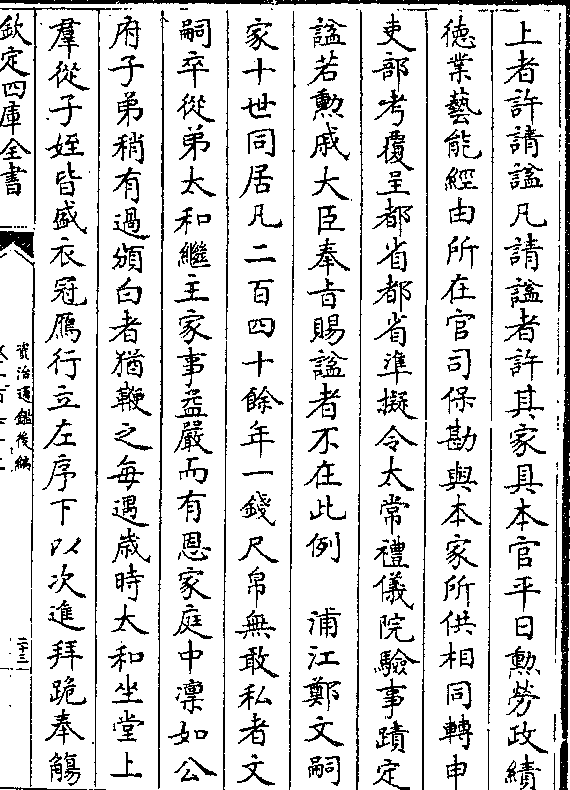 上者許請諡凡請諡者許其家具本官平日勲勞政績
徳業藝能經由所在官司保勘與本家所供相同轉申
吏部考覆呈都省都省準擬令太常禮儀院驗事蹟定
諡若勲戚大臣奉㫖賜諡者不在此例　浦江鄭文嗣
家十世同居凡二百四十餘年一錢尺帛無敢私者文
嗣卒從弟太和繼主家事益嚴而有恩家庭中凛如公
府子弟稍有過頒白者猶鞭之每遇歳時太和坐堂上
羣從子姪皆盛衣冠鴈行立左序下以次進拜跪奉觴
欽定四庫全書
資治通鑑後編
二十三